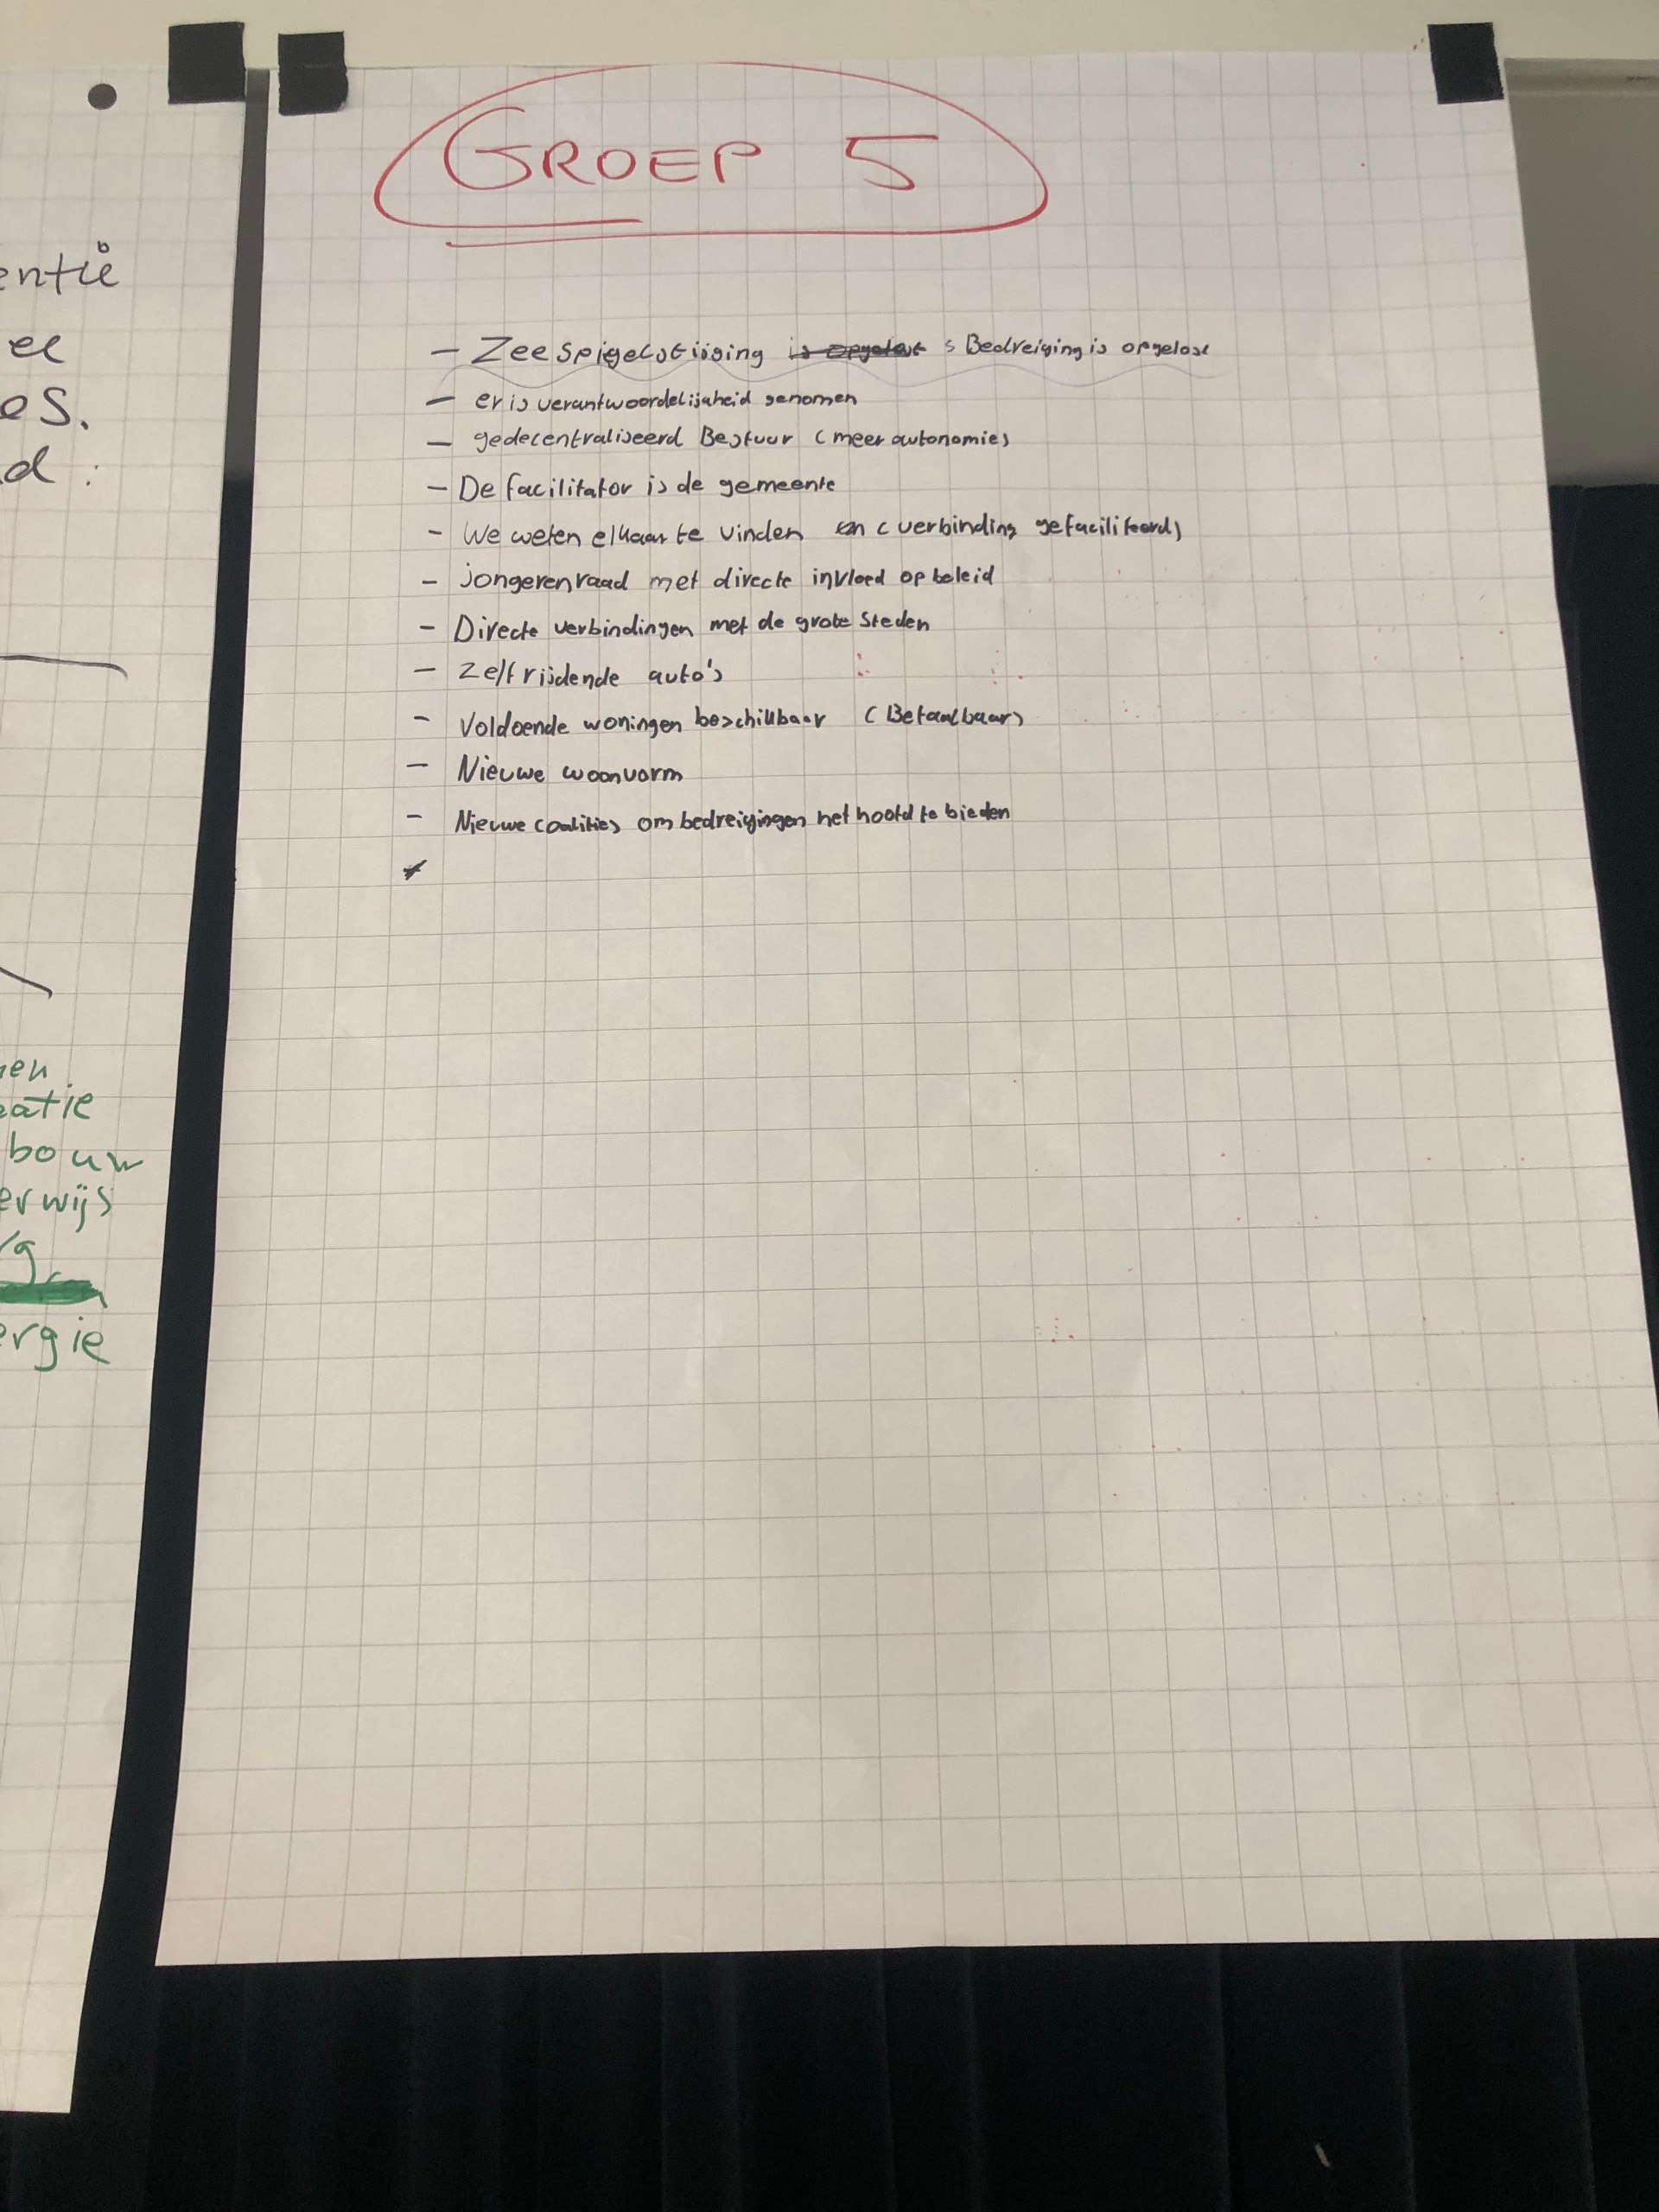 GROEP 5
- Zeespiegelstijging is opgelost s Bedreiging is opgelost
- er is verantwoordelijkheid genomen
- gedecentraliseerd Bestuur (meer autonomie)
- De facilitator is de gemeente
- We weten elkaar te vinden en (verbinding gefaciliteerd)
- jongerenraad met directe invloed op beleid
- Directe verbindingen met de grote Steden
- Zelfrijdende auto's
- Voldoende woningen beschikbaar (Betaalbaar)
- Nieuwe woonvorm
- Nieuwe coalities om bedreigingen het hoofd te bieden
entie
ee
es.
d :
en
atie
bouw
erwijs
rg
ergie